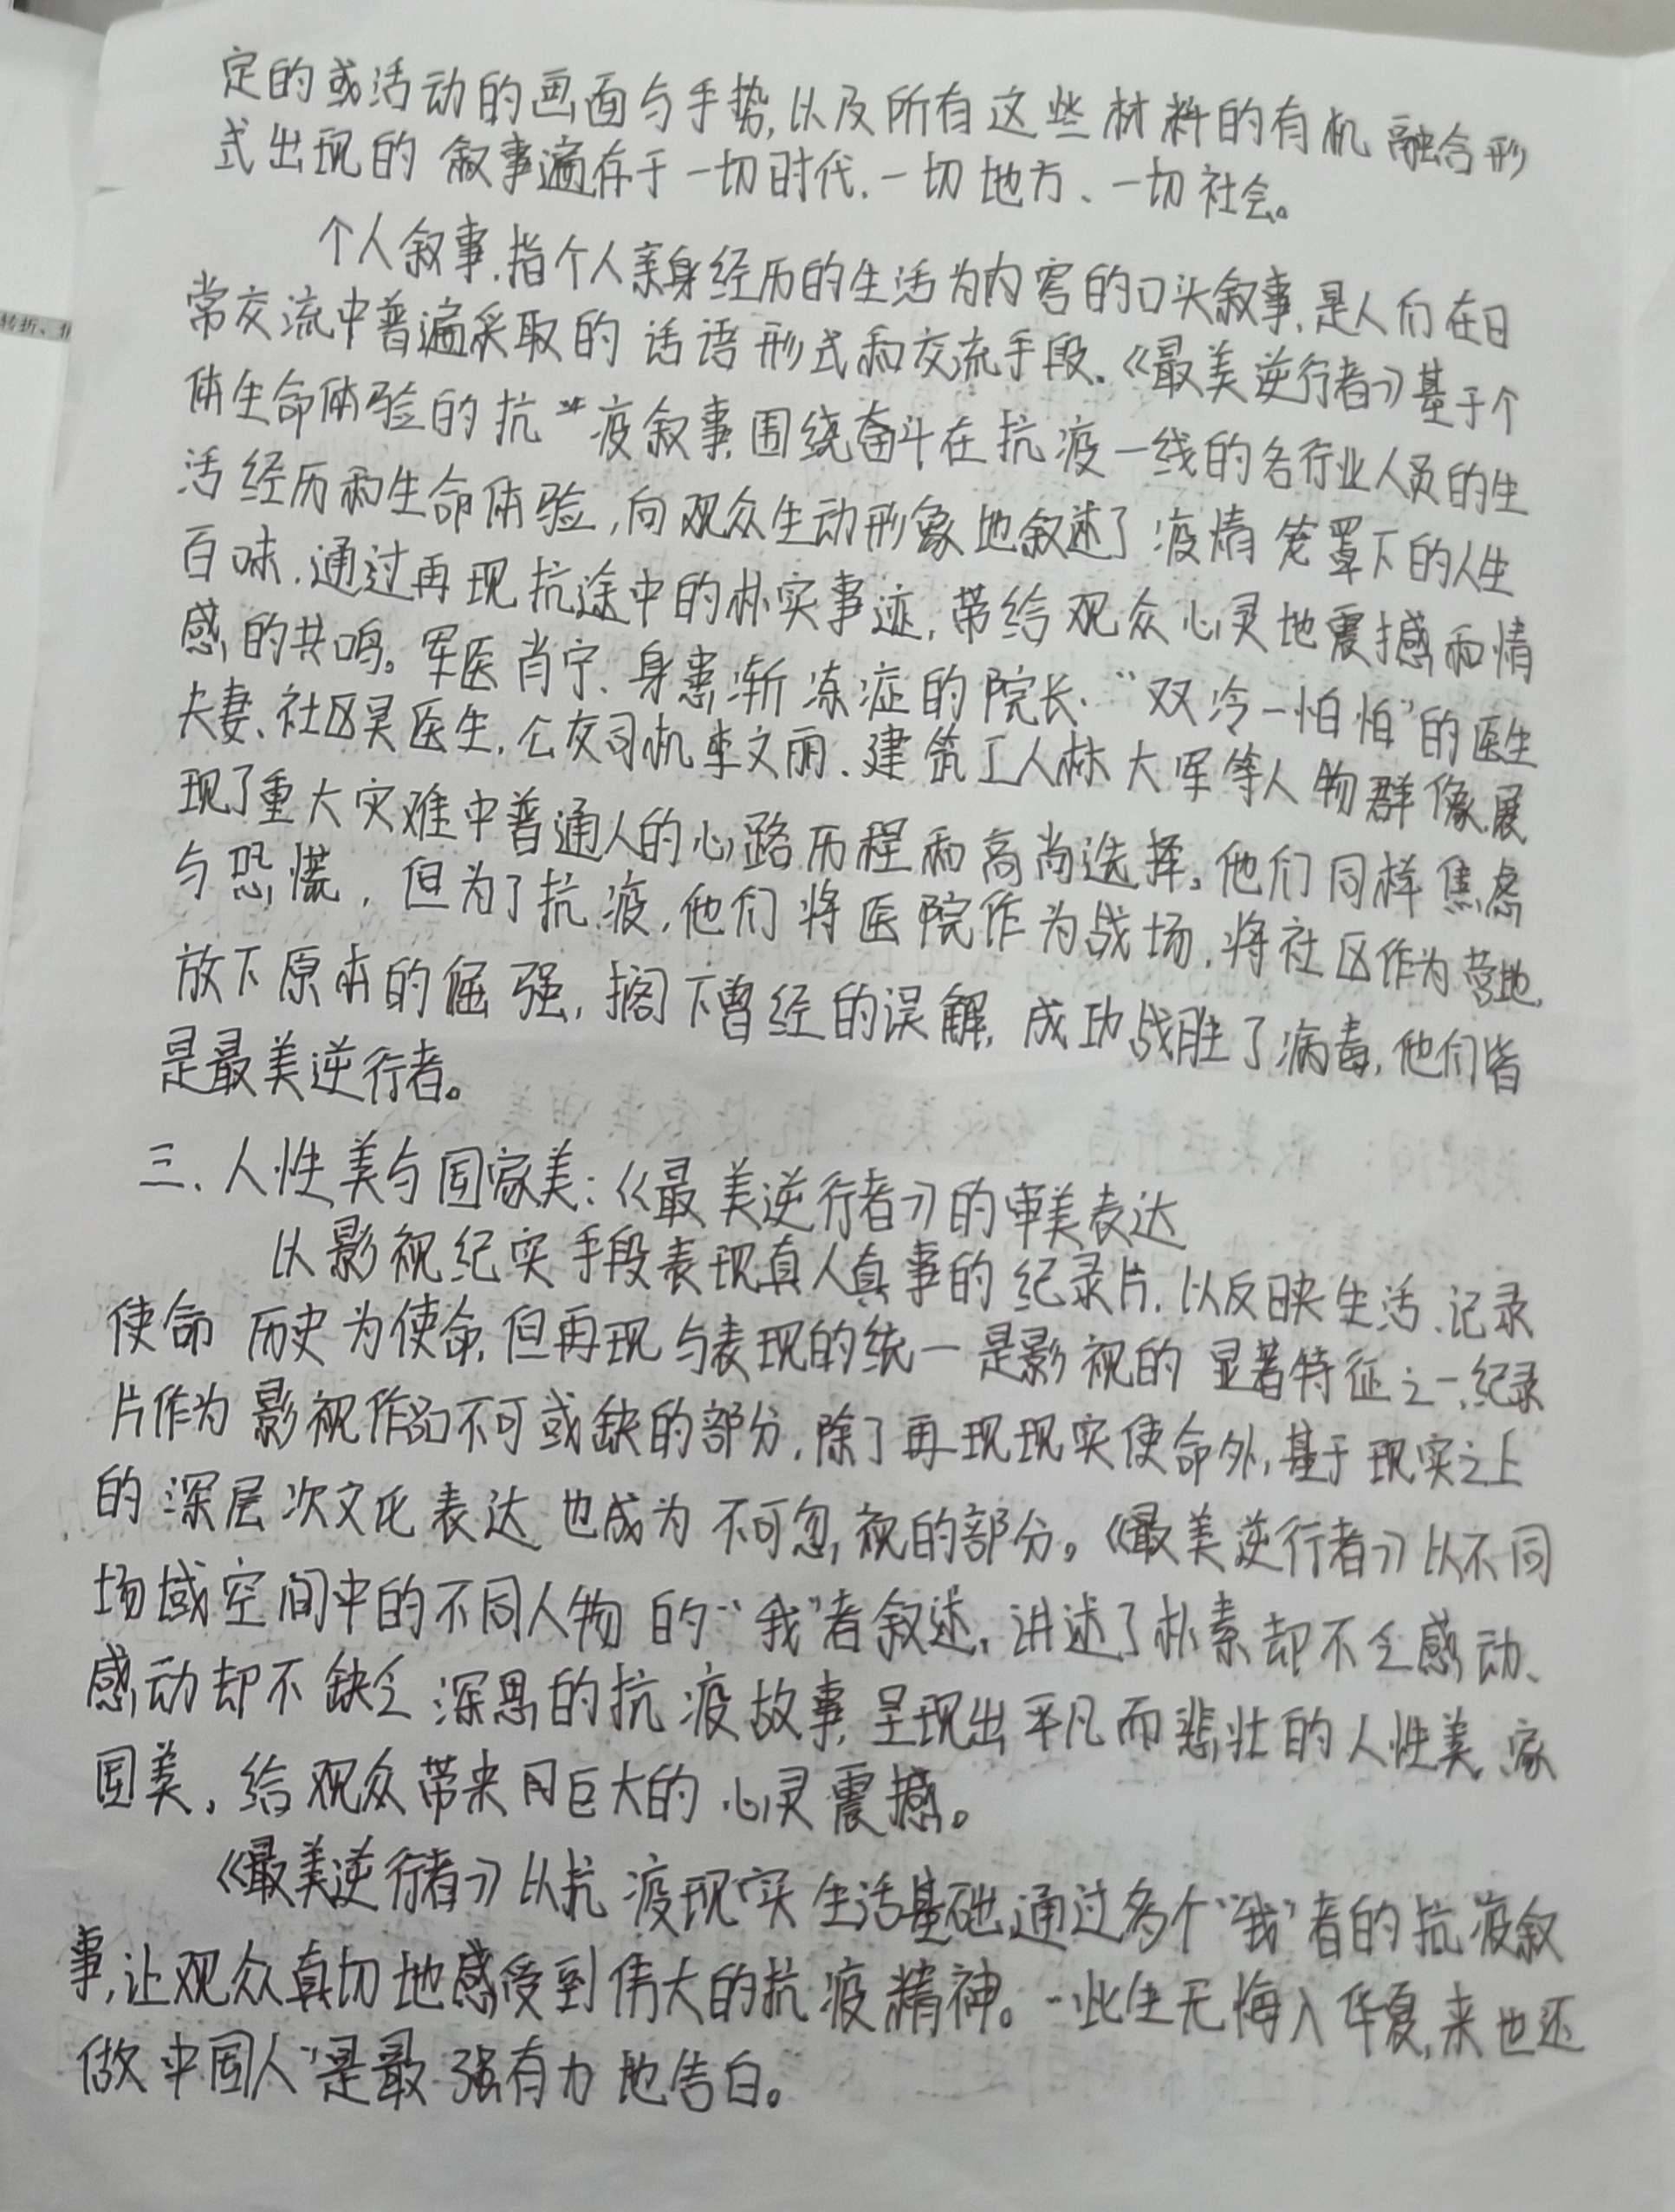 定的或活动的画面与手势,以及所有这些材料的有机融合形
式出现的叙事遍存于一切时代、一切地方、一切社会。
个人叙事,指个人亲身经历的生活为内容的口头叙事,是人们在日
常交流中普遍采取的话语形式和交流手段.《最美逆行者》基于个
体生命体验的抗疫叙事,围绕奋斗在抗疫一线的各行业人员的生
活经历和生命体验,向观众生动形象地叙述了疫情笼罩下的人生
百味.通过再现抗途中的朴实事迹,带给观众心灵地震撼和情
感的共鸣。军医肖宁、身患渐冻症的院长、“双冷一怕怕”的医生
夫妻、社区吴医生,公交司机李文丽、建筑工人林大军等人物群像,展
现了重大灾难中普通人的心路历程和高尚选择,他们同样焦虑
与恐慌,但为了抗疫,他们将医院作为战场,将社区作为营地,
放下原本的倔强,搁下曾经的误解,成功战胜了病毒,他们皆
是最美逆行者。
三、人性美与国家美:《最美逆行者》的审美表达
以影视纪实手段表现真人真事的纪录片,以反映生活、记录
使命 历史为使命,但再现与表现的统一是影视的显著特征之一,纪录
片作为影视作品不可或缺的部分,除了再现现实使命外,基于现实之上
的深层次文化表达也成为不可忽视的部分。《最美逆行者》以不同
场域空间中的不同人物的“我”者叙述,讲述了朴素却不乏感动、
感动却不缺乏深思的抗疫故事,呈现出平凡而悲壮的人性美、家
国美,给观众带来巨大的心灵震撼。
《最美逆行者》以抗疫现实生活基础,通过多个“我”者的抗疫叙
事,让观众真切地感受到伟大的抗疫精神。“此生无悔入华夏,来也还
做中国人”是最强有力地告白。
转折、